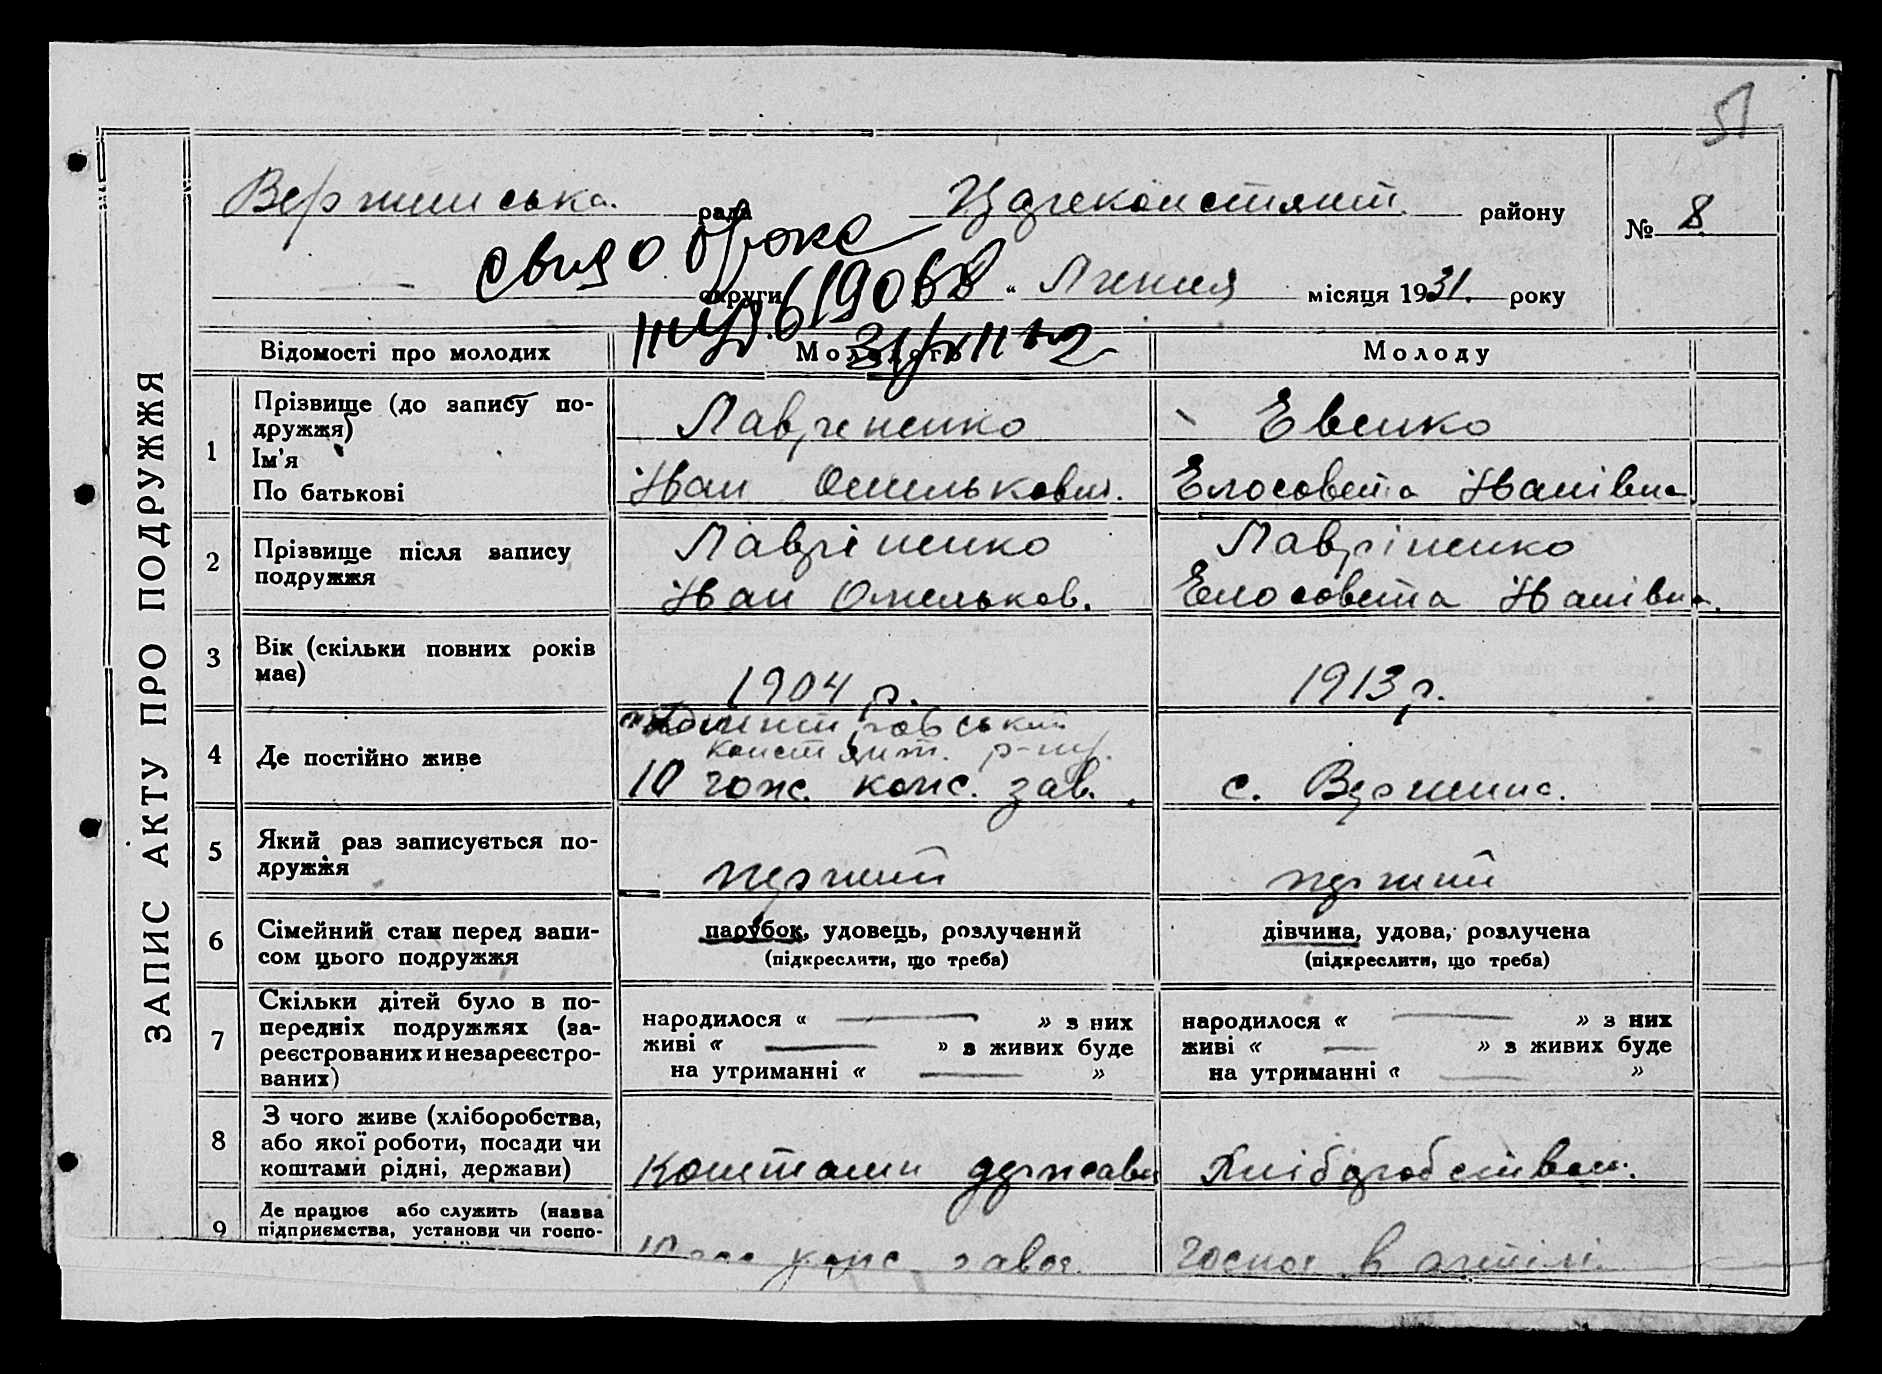 51
Вершинська рада Цареконстянт. району № 8
округи " Липня місяця 1931. року
Відомості про молодих Молодого Молоду
ЗАПИС АКТУ ПРО ПОДРУЖЖЯ
1 Прізвище (до запису по-
дружжя)
Ім'я
По батькові
Лавренко
Іван Омелькович.
Евенко
Елосовета Іванівна
2 Прізвище після запису
подружжя
Лавріненко
Іван Омельков.
Лавріненко
Елосовета Іванівна.
3 Вік (скільки повних років
має)
1904 р.
1913 р.
4 Де постійно живе
10 конс. зав.
с. Вершина.
5 Який раз записується по-
дружжя
перший
перший
6 Сімейний стан перед запи-
сом цього подружжя
парубок, удовець, розлучений
(підкреслити, що треба)
дівчина, удова, розлучена
(підкреслити, що треба)
7 Скільки дітей було в по-
передніх подружжях (за-
реєстрованих и незареєстро-
ваних)
народилося « — » з них
живі « — » з живих буде
на утриманні « — »
народилося « — » з них
живі « — » з живих буде
на утриманні « — »
8 З чого живе (хліборобства,
або якої роботи, посади чи
коштами рідні, держави)
Коштами держави
Хліборобством.
9 Де працює або служить (назва
підприємства, установи чи госпо-
10 конс. завод
в артілі